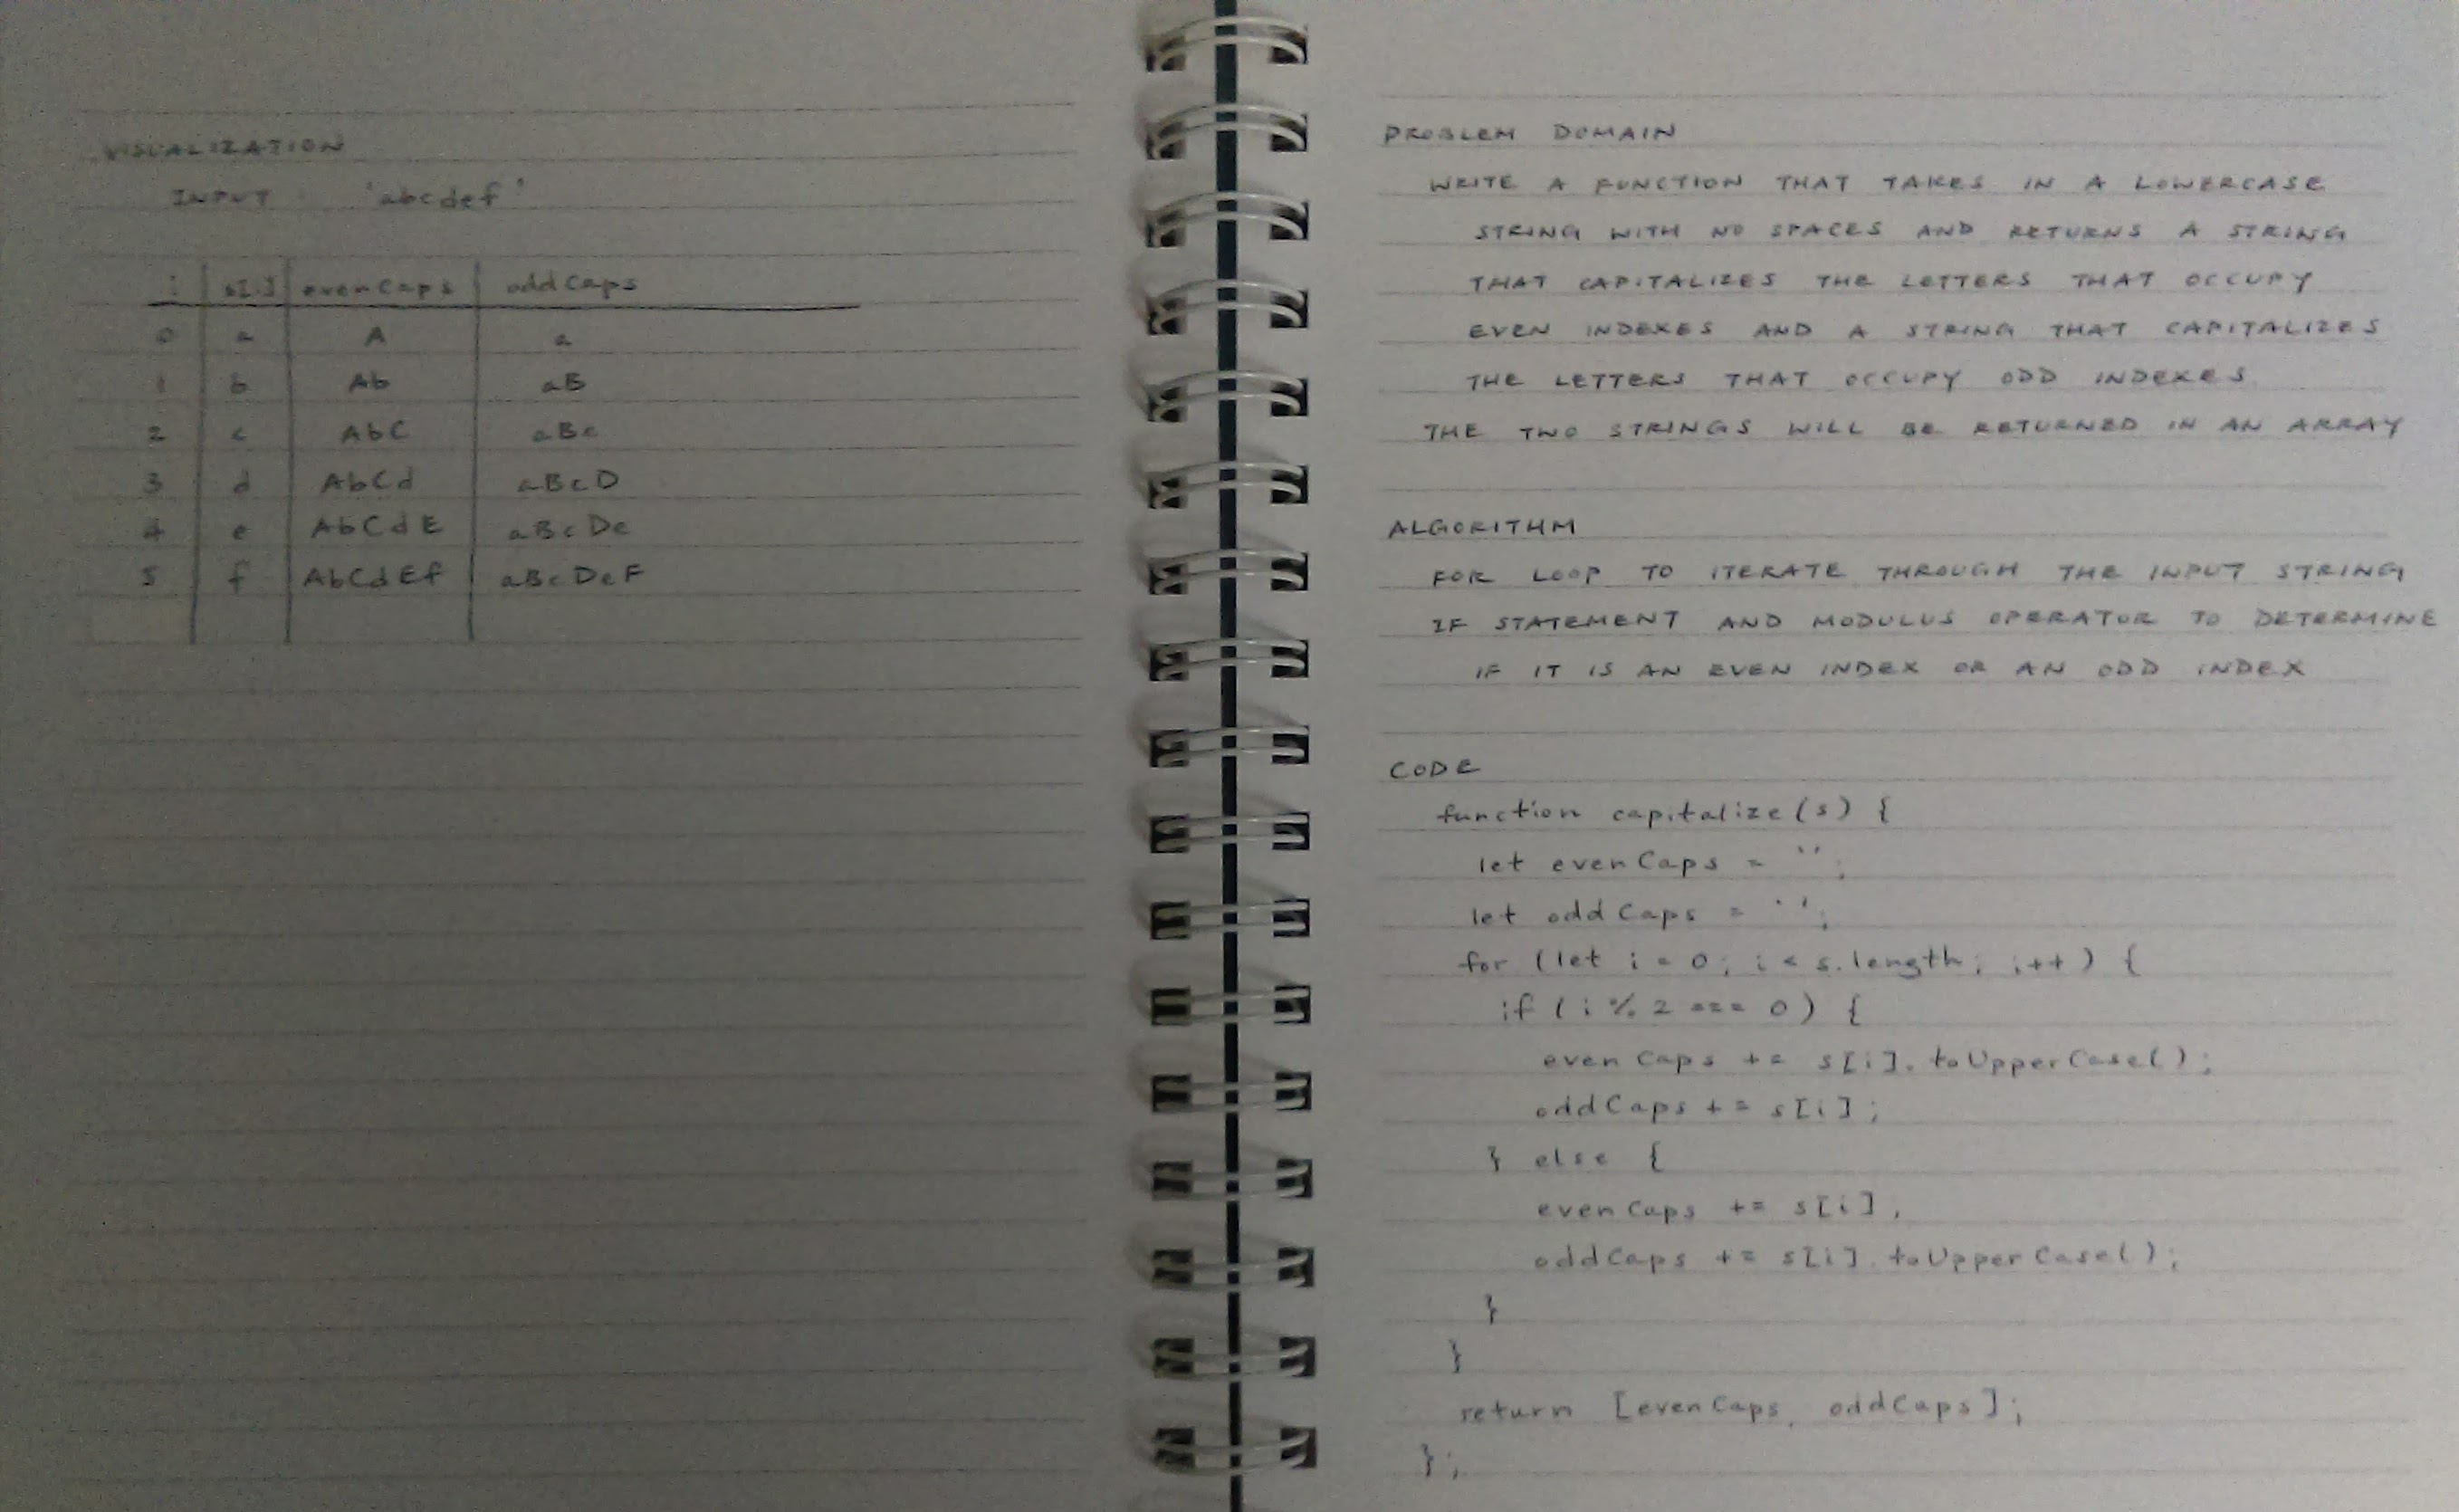 VISUALIZATION
INPUT 'abcdef'
i s[i] evenCaps oddCaps
0 a A a
1 b Ab aB
2 c AbC aBc
3 d AbCd aBcD
4 e AbCdE aBcDe
5 f AbCdEf aBcDeF
PROBLEM DOMAIN
WRITE A FUNCTION THAT TAKES IN A LOWERCASE
STRING WITH NO SPACES AND RETURNS A STRING
THAT CAPITALIZES THE LETTERS THAT OCCUPY
EVEN INDEXES AND A STRING THAT CAPITALIZES
THE LETTERS THAT OCCUPY ODD INDEXES
THE TWO STRINGS WILL BE RETURNED IN AN ARRAY
ALGORITHM
FOR LOOP TO ITERATE THROUGH THE INPUT STRING
IF STATEMENT AND MODULUS OPERATOR TO DETERMINE
IF IT IS AN EVEN INDEX OR AN ODD INDEX
CODE
function capitalize(s) {
let evenCaps = '';
let oddCaps = '';
for (let i = 0; i < s.length; i++) {
if (i % 2 === 0) {
evenCaps += s[i].toUpperCase();
oddCaps += s[i];
} else {
evenCaps += s[i];
oddCaps += s[i].toUpperCase();
}
}
return [evenCaps, oddCaps];
};